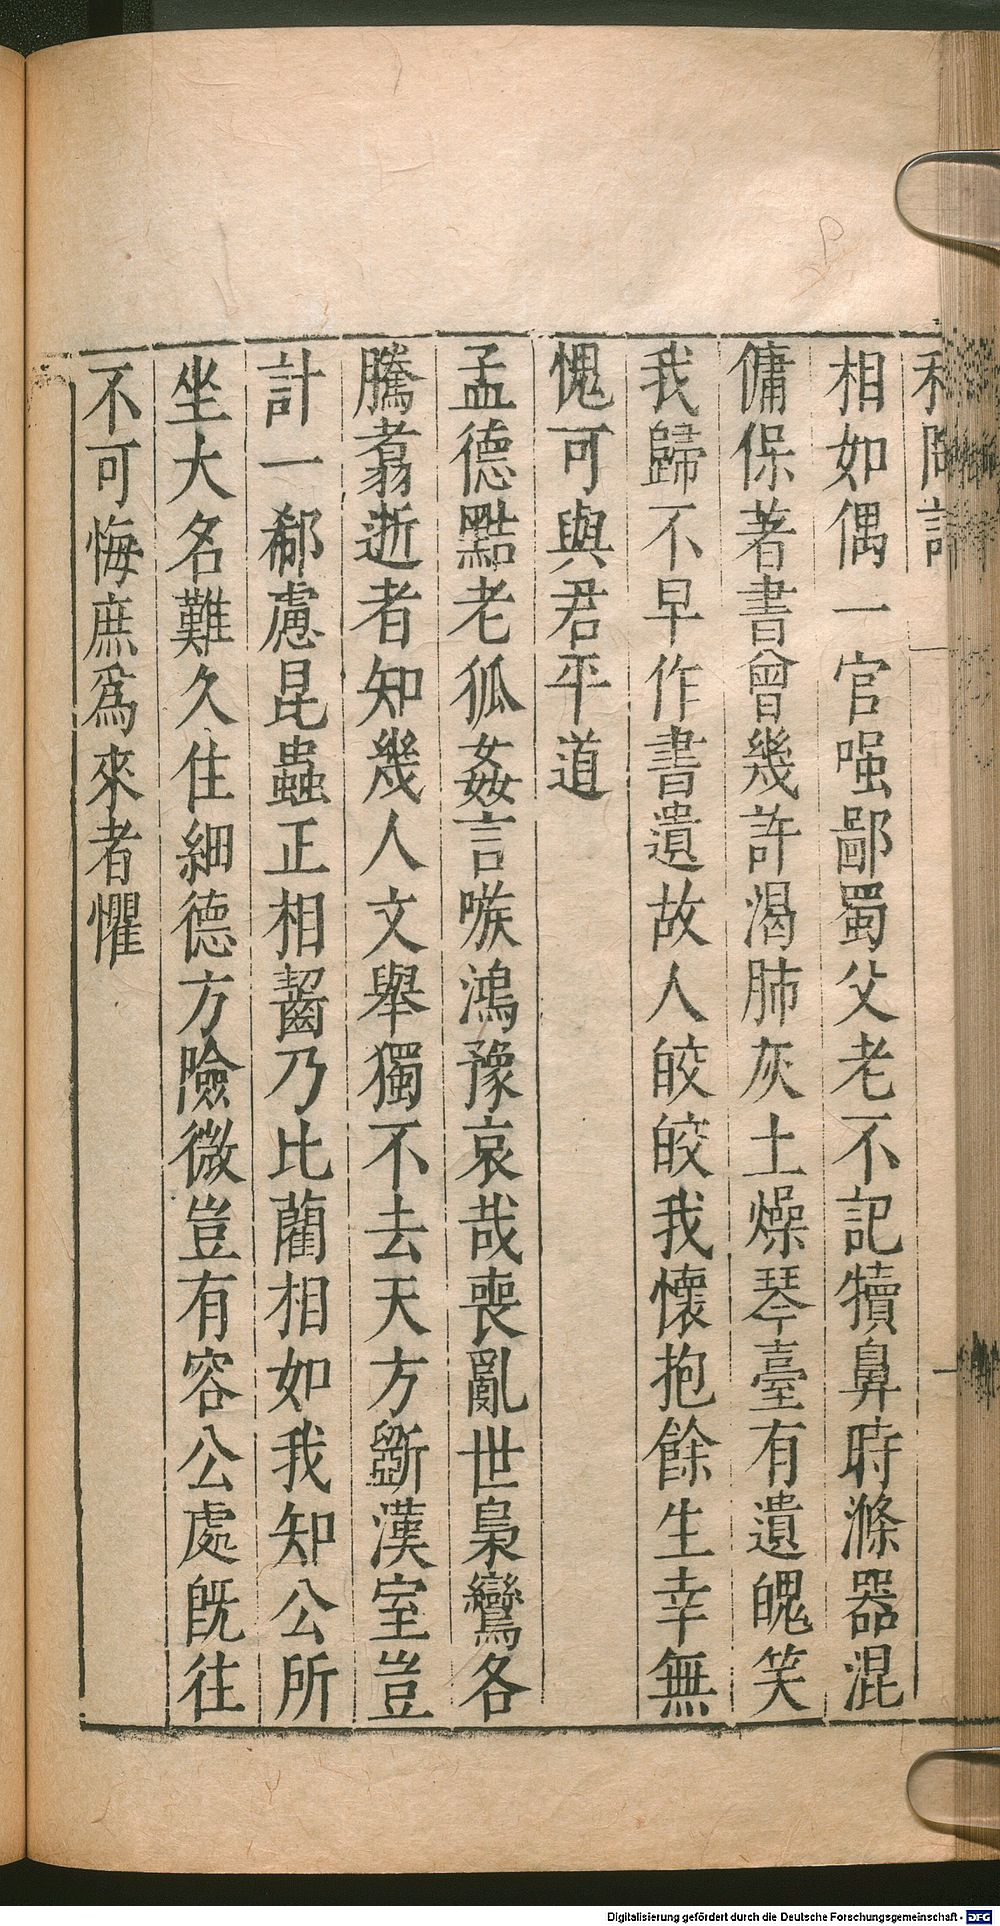 和陶詩
相如偶一官嗤鄙蜀父老不記犢鼻時滌器混
傭保著書曾幾許渴肺灰土燥琴臺有遺魄笑
我歸不早作書遺故人皎皎我懷抱餘生幸無
愧可與君平道
孟德黠老狐姦言嗾鴻豫哀哉喪亂世梟鸞各
騰翥逝者知幾人文舉獨不去天方斲漢室豈
計一郗慮昆蟲正相齧乃比藺相如我知公所
坐大名難久住細德方險微豈有容公處旣往
不可悔庶爲來者懼
Digitalisierung gefördert durch die Deutsche Forschungsgemeinschaft - DFG